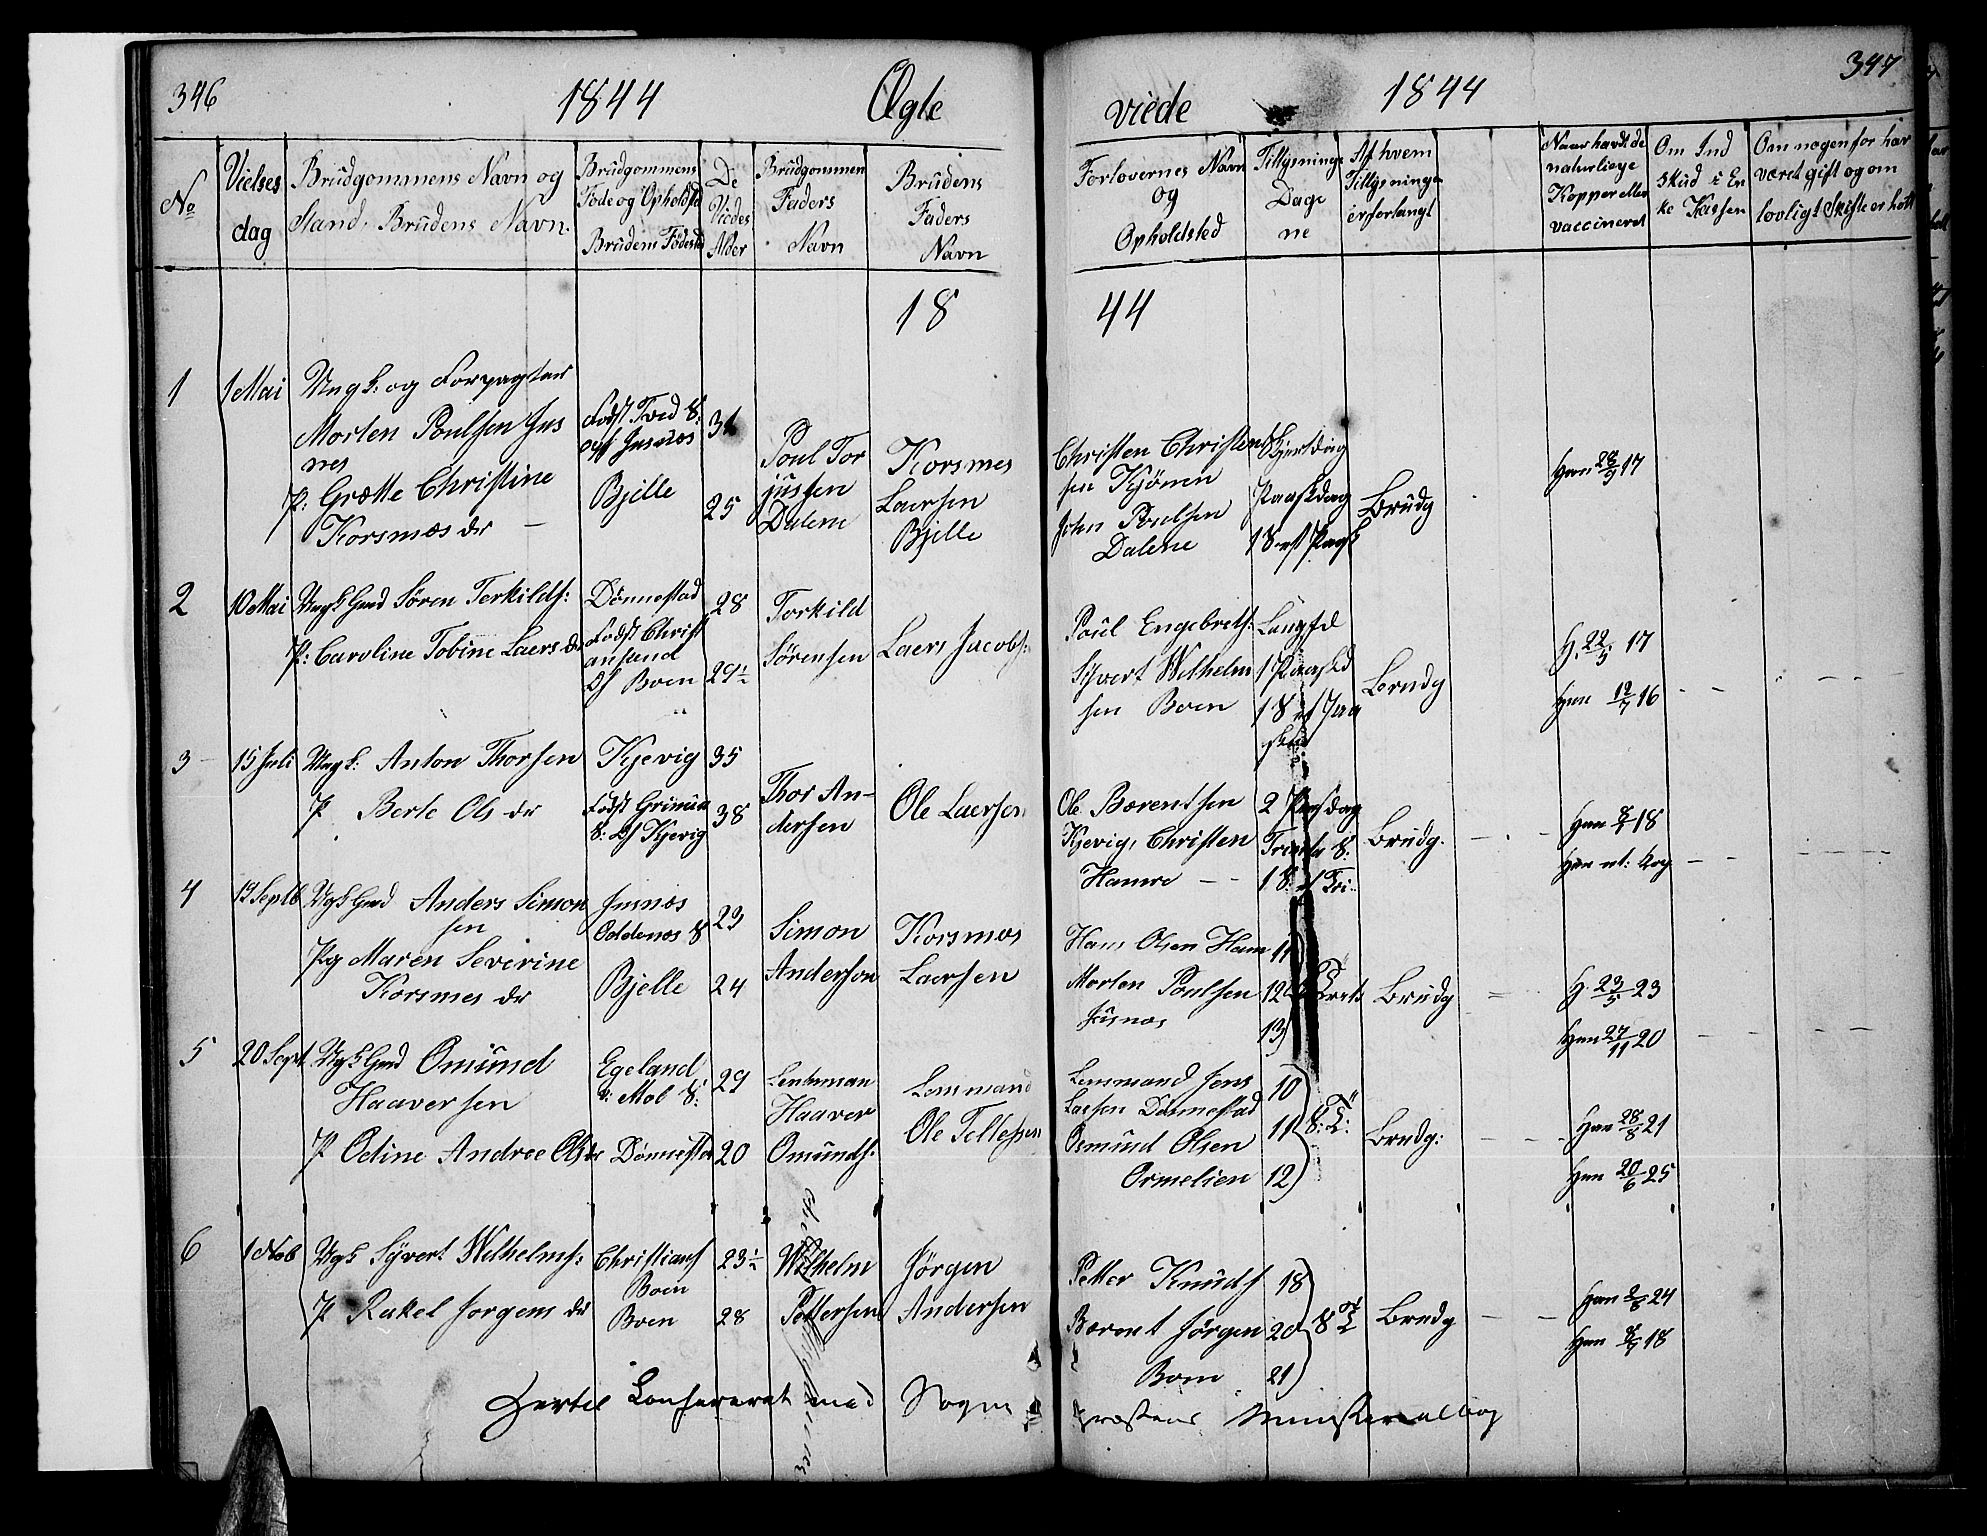 346
1844
Ægte
viede
1844
347
No
Vielses dag
Brudgommens Navn og Stand, Brudens Navn.
Brudgommens Føde og Opholdsd Brudens Fødested
De Viedes Alder
Brudgommen Faders Navn
Brudens Faders Navn
Forlovernes Navn og Opholdsted
Tillysnings Dage ne
Af hvem Tillysningen er forlangt
Naar havt de naturlige Kopper eller vaccineret
Om Ind skud i En ke Kassen
Om nogen før har været gift og om lovligt Skifte er hold
18
44
1
1 Mai
Ungk: og Forpagter
Morten Poulsen Jus
nes
P: Grætte Christine
Korsmæs dr
Født Tved S:
Bjelle
25
Poul Tor
jussen
Dalene
Korsmes
Laersen
Bjelle
Christen Christen
sen Kjönen
John Poulsen
Dalene
Paaskdag
Brudg
Hen 28/9 17
2
10 Mai
Ungk Gmd Søren Terkilds:
P: Caroline Tobine Laers dr
Dønnestad
Født Christ
ansand
Of Boen
28
29½
Torkild
Sørensen
Laers Jacobs:
Poul Engebrets:
Syvert Wilhelm
sen Boen
Langfd
1 Paaskd
Brudg
H. 22/5 17
Hen 12/7 16
3
15 Juli
Ungk: Anton Thorsen
P Berte Ols dr
Kjevig
Født Grimua
S: Of Kjevig
35
38
Thor An-
dersen
Ole Laersen
Ole Bærentsen
Kjevig, Christen
Hamre
Brudg.
Hen 18
4
13 Septb
Ugk Gmd Anders Simon
sen
Pg Maren Severine
Korsmes dr
Jusnæs
Oddenæs S
Bjelle
23
24
Simon
Anderson
Korsmos
Laersen
Hans Olsen Ham
Morten Poulsen
Jusnæs
11
12
13
Brudg
H. 23/5 23
Hen 27/11 20
5
20 Sept
Ugk Gmd Omund
Haaversen
P Odine Andree Ols dr
Egeland
i Mol S:
Dønnestad
29
20
Lensman
Haaver
Omunds:
Lensmand
Ole Tellefsen
Lensmand Jens
Larsen Dønnestad
Osmund Olsen
Ormelien
10
11
12
Brudg:
Hen 28/8 21
Hen 20/6 25
6
1 Nob
Ugk Syvert Wilhelms:
P Rakel Jorgens dr
Christians
Boen
Boen
23½
28
Wilhelm
Pettersen
Jørgen
Andersen
Petter Knuds
Bærent Jörgen
Boen
18
20
21
Brudg
Hen 24
Hen 18
Hertil Konfereret med Sogne
præstens Ministerialbog